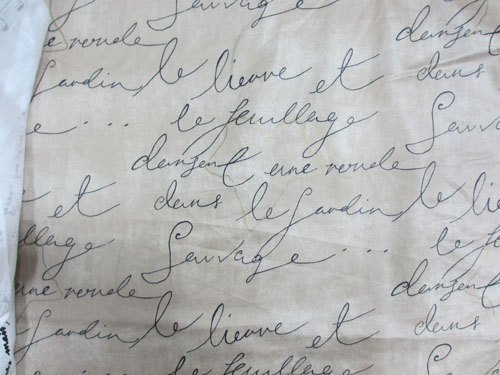 Sauvage
une ronde dansent
Jardin le lievre et dans
... le feuillage Sauvage
dansent une ronde
et dans le Jardin le lie
illage Sauvage ... le fe
une ronde dansent
Jardin le lievre et dans
le feuillage Sauva
main